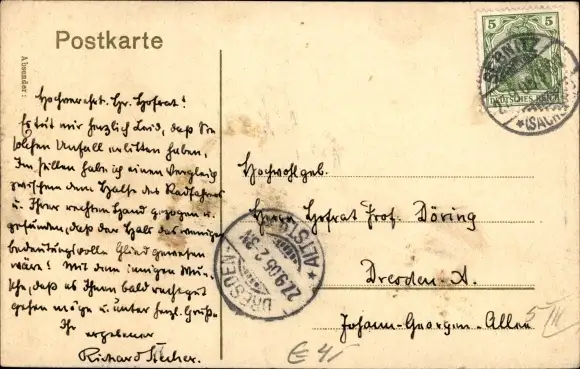 Postkarte
Absender:
Hochverehrt. Hr. Hofrat!
Es tut mir herzlich Leid, daß Sie
solchen Unfall erlitten haben.
Im stillen habe ich einen Vergleich
zwischen dem Halse des Radfahrers
u. Ihrer rechten Hand gezogen u.
gefunden, daß der Hals das weniger
bedeutungsvolle Glied gewesen
wäre! Mit dem innigen Wun-
sche, daß es Ihnen bald recht gut
gehen möge u. unter herzl. Grüße
Ihr
ergebener
Richard
5 5
DEUTSCHES REICH
SEBNITZ
*(SACHSEN)
Hochwohlgeb.
Herrn Hofrat Prof. Döring
Dresden-A.
Johann-Georgen-Allee
5/III
DRESDEN
ALTST.
22.9.05. 2-3N